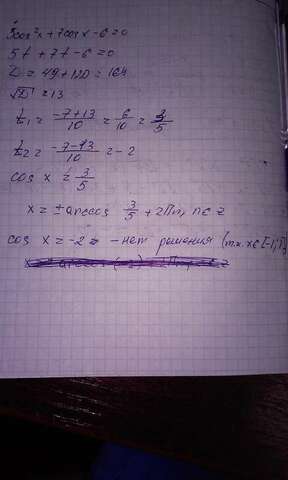 5cos²x+7cosx-6=0
5t+7t-6=0
D=49+120=164
√D=13
t₁=(-7+13)/10=6/10=3/5
t₂=(-7-13)/10=-2
cos x=3/5
x=±arccos 3/5+2Пn, n∈z
cos x=-2 - нет решения (т.к. x∈[-1;1]